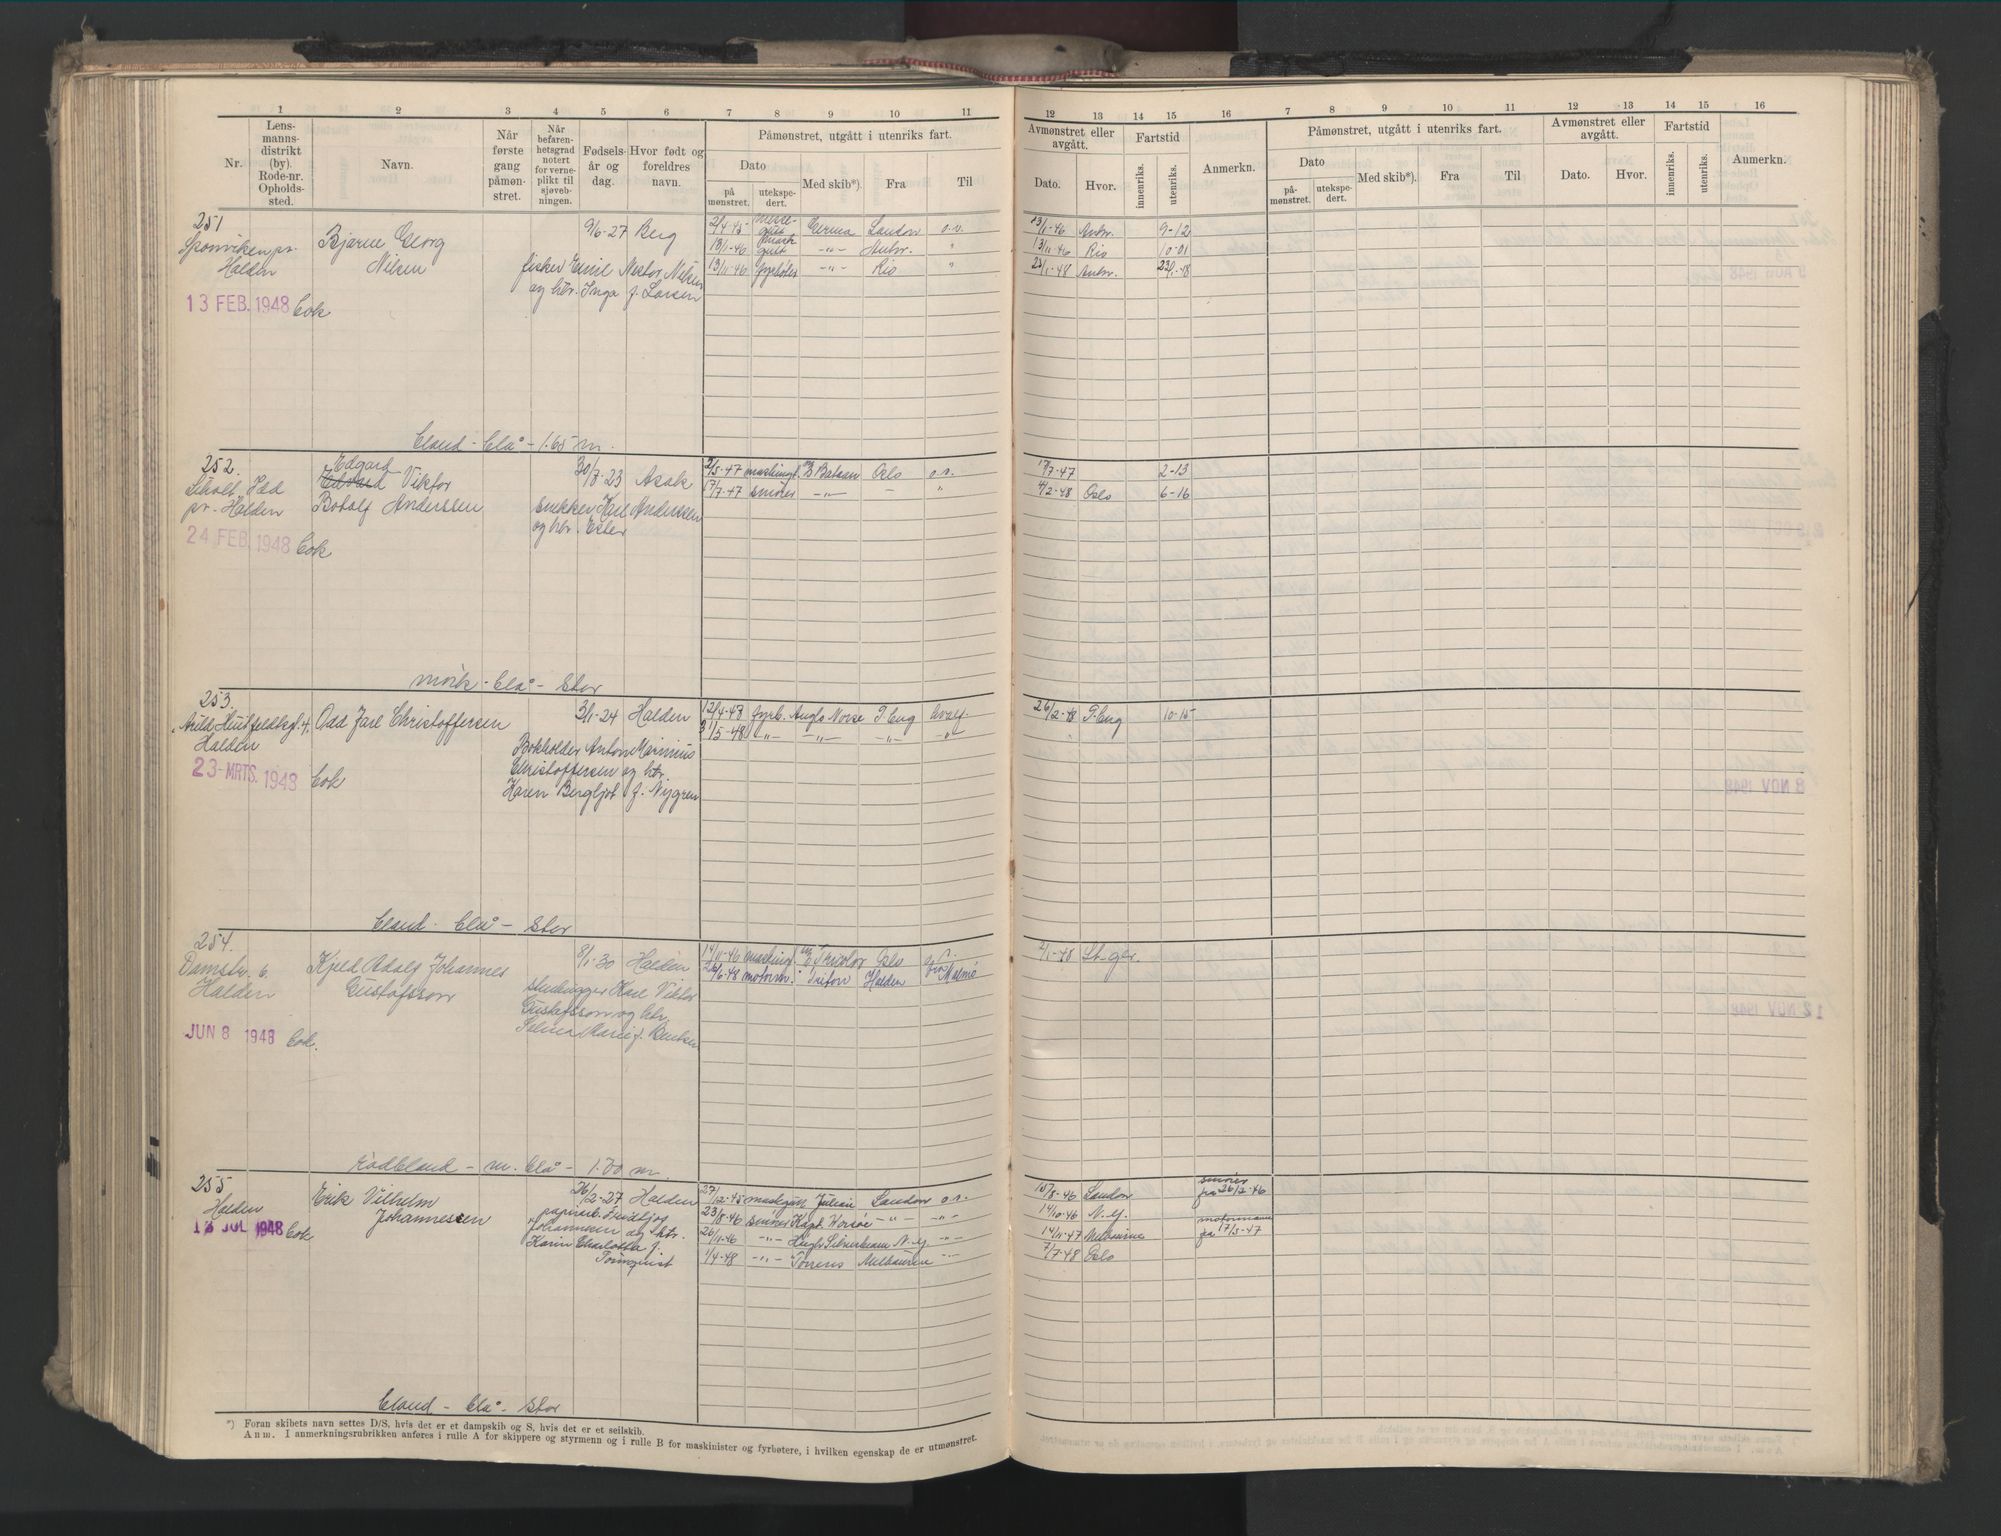 1 2 3 4 5 6 7 8 9 10 11
Nr.
Lens-
manns-
distrikt
(by).
Rode-nr.
Opholds-
sted.
Navn.
Når
første
gang
påmøn-
stret.
Når
befaren-
hetsgrad
notert
for verne-
plikt til
sjøveb-
ningen.
Fødsels-
år og
dag.
Hvor født og
foreldres
navn.
Påmønstret, utgått i utenriks fart.
Dato
på
mønstret.
utekspe-
dert.
Med skib*).
Fra
Til
12 13 14 15 16 7 8 9 10 11 12 13 14 15 16
Avmønstret eller
avgått.
Dato.
Hvor.
Fartstid
innenriks.
utenriks.
Anmerkn.
Påmønstret, utgått i utenriks fart.
Dato
på-
mønstret.
utekspe-
dert.
Med skib*).
Fra
Til
Avmønstret eller
avgått.
Dato.
Hvor.
Fartstid
innenriks.
utenriks.
Anmerkn.
251
Sponviken pr.
Halden
13 FEB. 1948
Bjarne Georg
Nilsen
9/6-27 Berg
fisker Emil Nestor Nilsen
og htr. Inga f. Larsen
2/4-45 Gerina London o.v.
13/1-46 -"- Antw. "
13/11-46 fyrbøter -"- Rio "
13/1-46 Antw. 9-12
13/11-46 Rio 10-01
23/1-48 Antw.
Bland - blå - 1.65 m.
252.
pr. Halden
24 FEB. 1948
Edgard
Edvard Viktor
Botolf Anderssen
30/8-23 Asak
snekker Karl Anderssen
og htr. Ester
2/5-47 maskingt. M/S Bataan Oslo o.v.
17/7-47 smører -"- - "
17/7-47 2-13
4/2-48 Oslo 6-16
mörk - blå - stor
253.
Arild Huitfeldtsgt. 4,
Halden
23 MRTS. 1948
Odd Jarl Christoffersen
3/1-24 Halden
Bokholder Anton Marinius
Christoffersen og htr.
Karen Bergljot f. Nygren
12/4-48 fyrb. Anglo Norse T.berg hvalf.
31/5-48 -"- -"- -"- "
26/2-48 T.berg 10-15
Bland - blå - stor
254.
Damstr. 6.
Halden
JUN 8 1948
Kjeld Adolf Johannes
Gustafsson
8/1-30 Halden
Karl Viktor
Gustafsson og htr.
Selma Marie f.
14/11-46 maskingt. M/S Tricolor Oslo
6-48 motorm. Triton Halden Malmö
2/1-48
rödbland - m. blå - 1.70 m.
255
Halden
JUL 1948
Erik Vilhelm
Johannessen
26/2-27 Halden
papirarb. Fridtjof
Johannessen og htr.
Karin Charlotta f.
Törnquist
27/12-45 Julian London o.v.
23/8-46 smører Kapt. Worsöe -"- -"-
26/11-46 -"- Høegh Silverbeam N.Y. -"-
1/4-48 -"- Torrens Melbourne -"-
15/8-46 London smører fra 26/2-46
14/10-46 N.Y.
14/11-47 Melbourne motormann fra 17/5-47
7/7-48 Oslo
Bland - blå - stor
*) Foran skibets navn settes D/S, hvis det er et dampskib og S, hvis det er et seilskib.
Anm. I anmerkningsrubrikken anføres i rulle A for skippere og styrmenn og i rulle B for maskinister og fyrbøtere, i hvilken egenskap de er utmønstret.